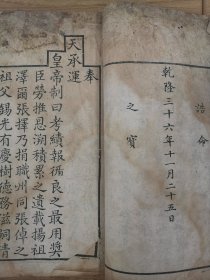 誥命
乾隆三十六年十一月二十五日
之寶
奉
天承運
皇帝制曰考績報循良之最用奬
臣勞推恩溯積累之遺載揚祖
澤爾張擇乃捐職州同張倬之
祖父錫光有慶樹德務滋嗣清